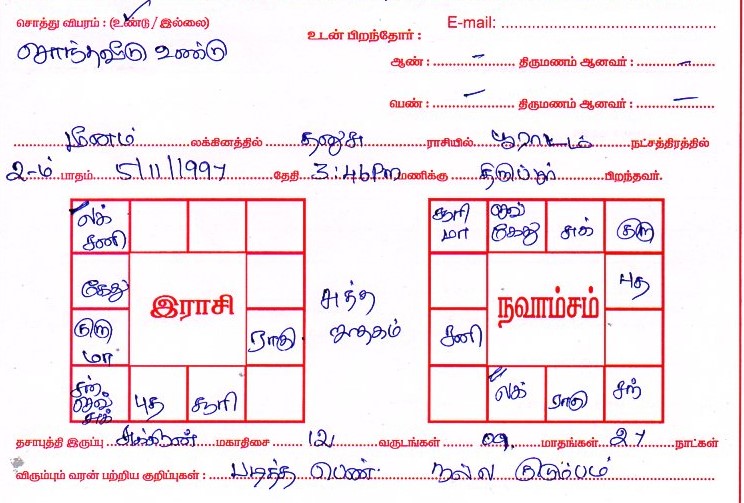 சொத்து விபரம் : (உண்டு / இல்லை)
சொந்தவீடு உண்டு
E-mail:
உடன் பிறந்தோர் :
ஆண் : – திருமணம் ஆனவர் : –
பெண் : – திருமணம் ஆனவர் : –
மீனம் லக்கினத்தில் தனுசு ராசியில் பூராடம் நட்சத்திரத்தில்
2-ம் பாதம் 5/11/1997 தேதி 3:46Pm மணிக்கு திருப்பூர் பிறந்தவர்.
லக் சனி
கேது
குரு மா
சந் செவ் சுக்
புத
சூரி
ராகு
இராசி
சுத்த ஜாதகம்
சூரி மா
செவ் கேது
சுக்
குரு
புத
சனி
லக்
ராகு
சந்
நவாம்சம்
தசாபுத்தி இருப்பு சுக்கிரன் மகாதிசை 12 வருடங்கள் 09 மாதங்கள் 27 நாட்கள்
விரும்பும் வரன் பற்றிய குறிப்புகள் : படித்த பெண். நல்ல குடும்பம்